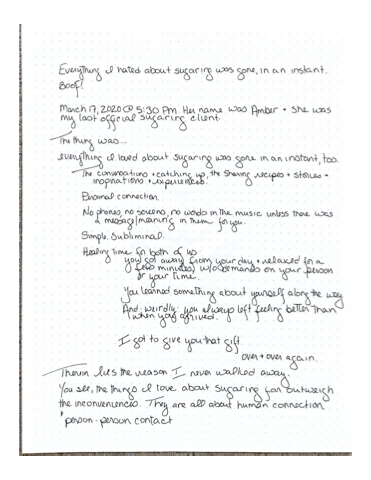 Everything I hated about sugaring was gone, in an instant.
Boof!
March 17, 2020 @ 5:30 PM. Her name was Amber + she was
my last official sugaring client.
The thing was...
everything I loved about sugaring was gone in an instant, too.
The conversations + catching up, the sharing recipes + stories +
inspirations + experiences.
Personal connection.
No phones, no screens, no words in the music unless there was
a message/meaning in them for you.
Simple. Subliminal.
Healing time for both of us
you got away from your day + relaxed for a
(few minutes) w/o demands on your person
or your time.
You learned something about yourself along the way
And, weirdly: you always left feeling better than
when you arrived.
I got to give you that gift
over + over again.
Therein lies the reason I never walked away.
You see, the things I love about sugaring far outweigh
the inconveniences. They are all about human connection
+ person-person contact